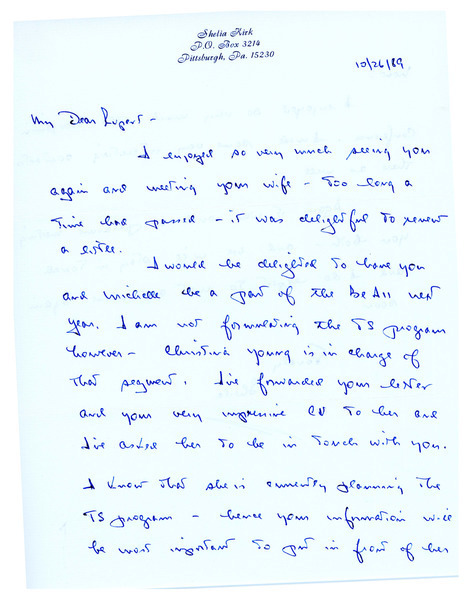 Shelia Kirk
P.O. Box 3214
Pittsburgh, Pa. 15230
10/26/89
My Dear Rupert -
I enjoyed so very much seeing you
again and meeting your wife - too long a
time had passed - it was delightful to renew
a little.
I would be delighted to have you
and Michelle be a part of the Be All next
year. I am not formulating the TS program
however - Christina Young is in charge of
that segment. I've forwarded your letter
and your very impressive CV to her and
I've asked her to be in touch with you.
I know that she is currently planning the
TS program - hence your information will
be most important to put in front of her